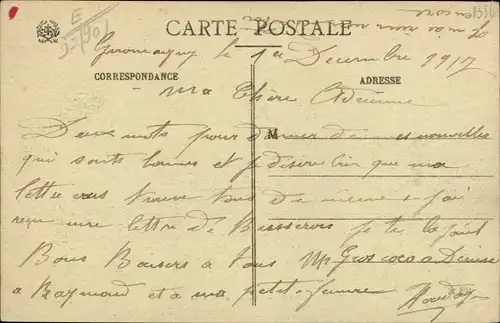 CARTE POSTALE
E
Giromagny le 1er Décembre 1917
CORRESPONDANCE
ADRESSE
Ma Chère Adrienne
Deux mots pour donner de mes nouvelles
M
qui sont bonnes et je désire bien que ma
lettre vous trouve tous de même & j'ai
reçu une lettre de je te la joint
Bons Baisers a tous Un Gros coco a Denise
a Raymond et a ma petite